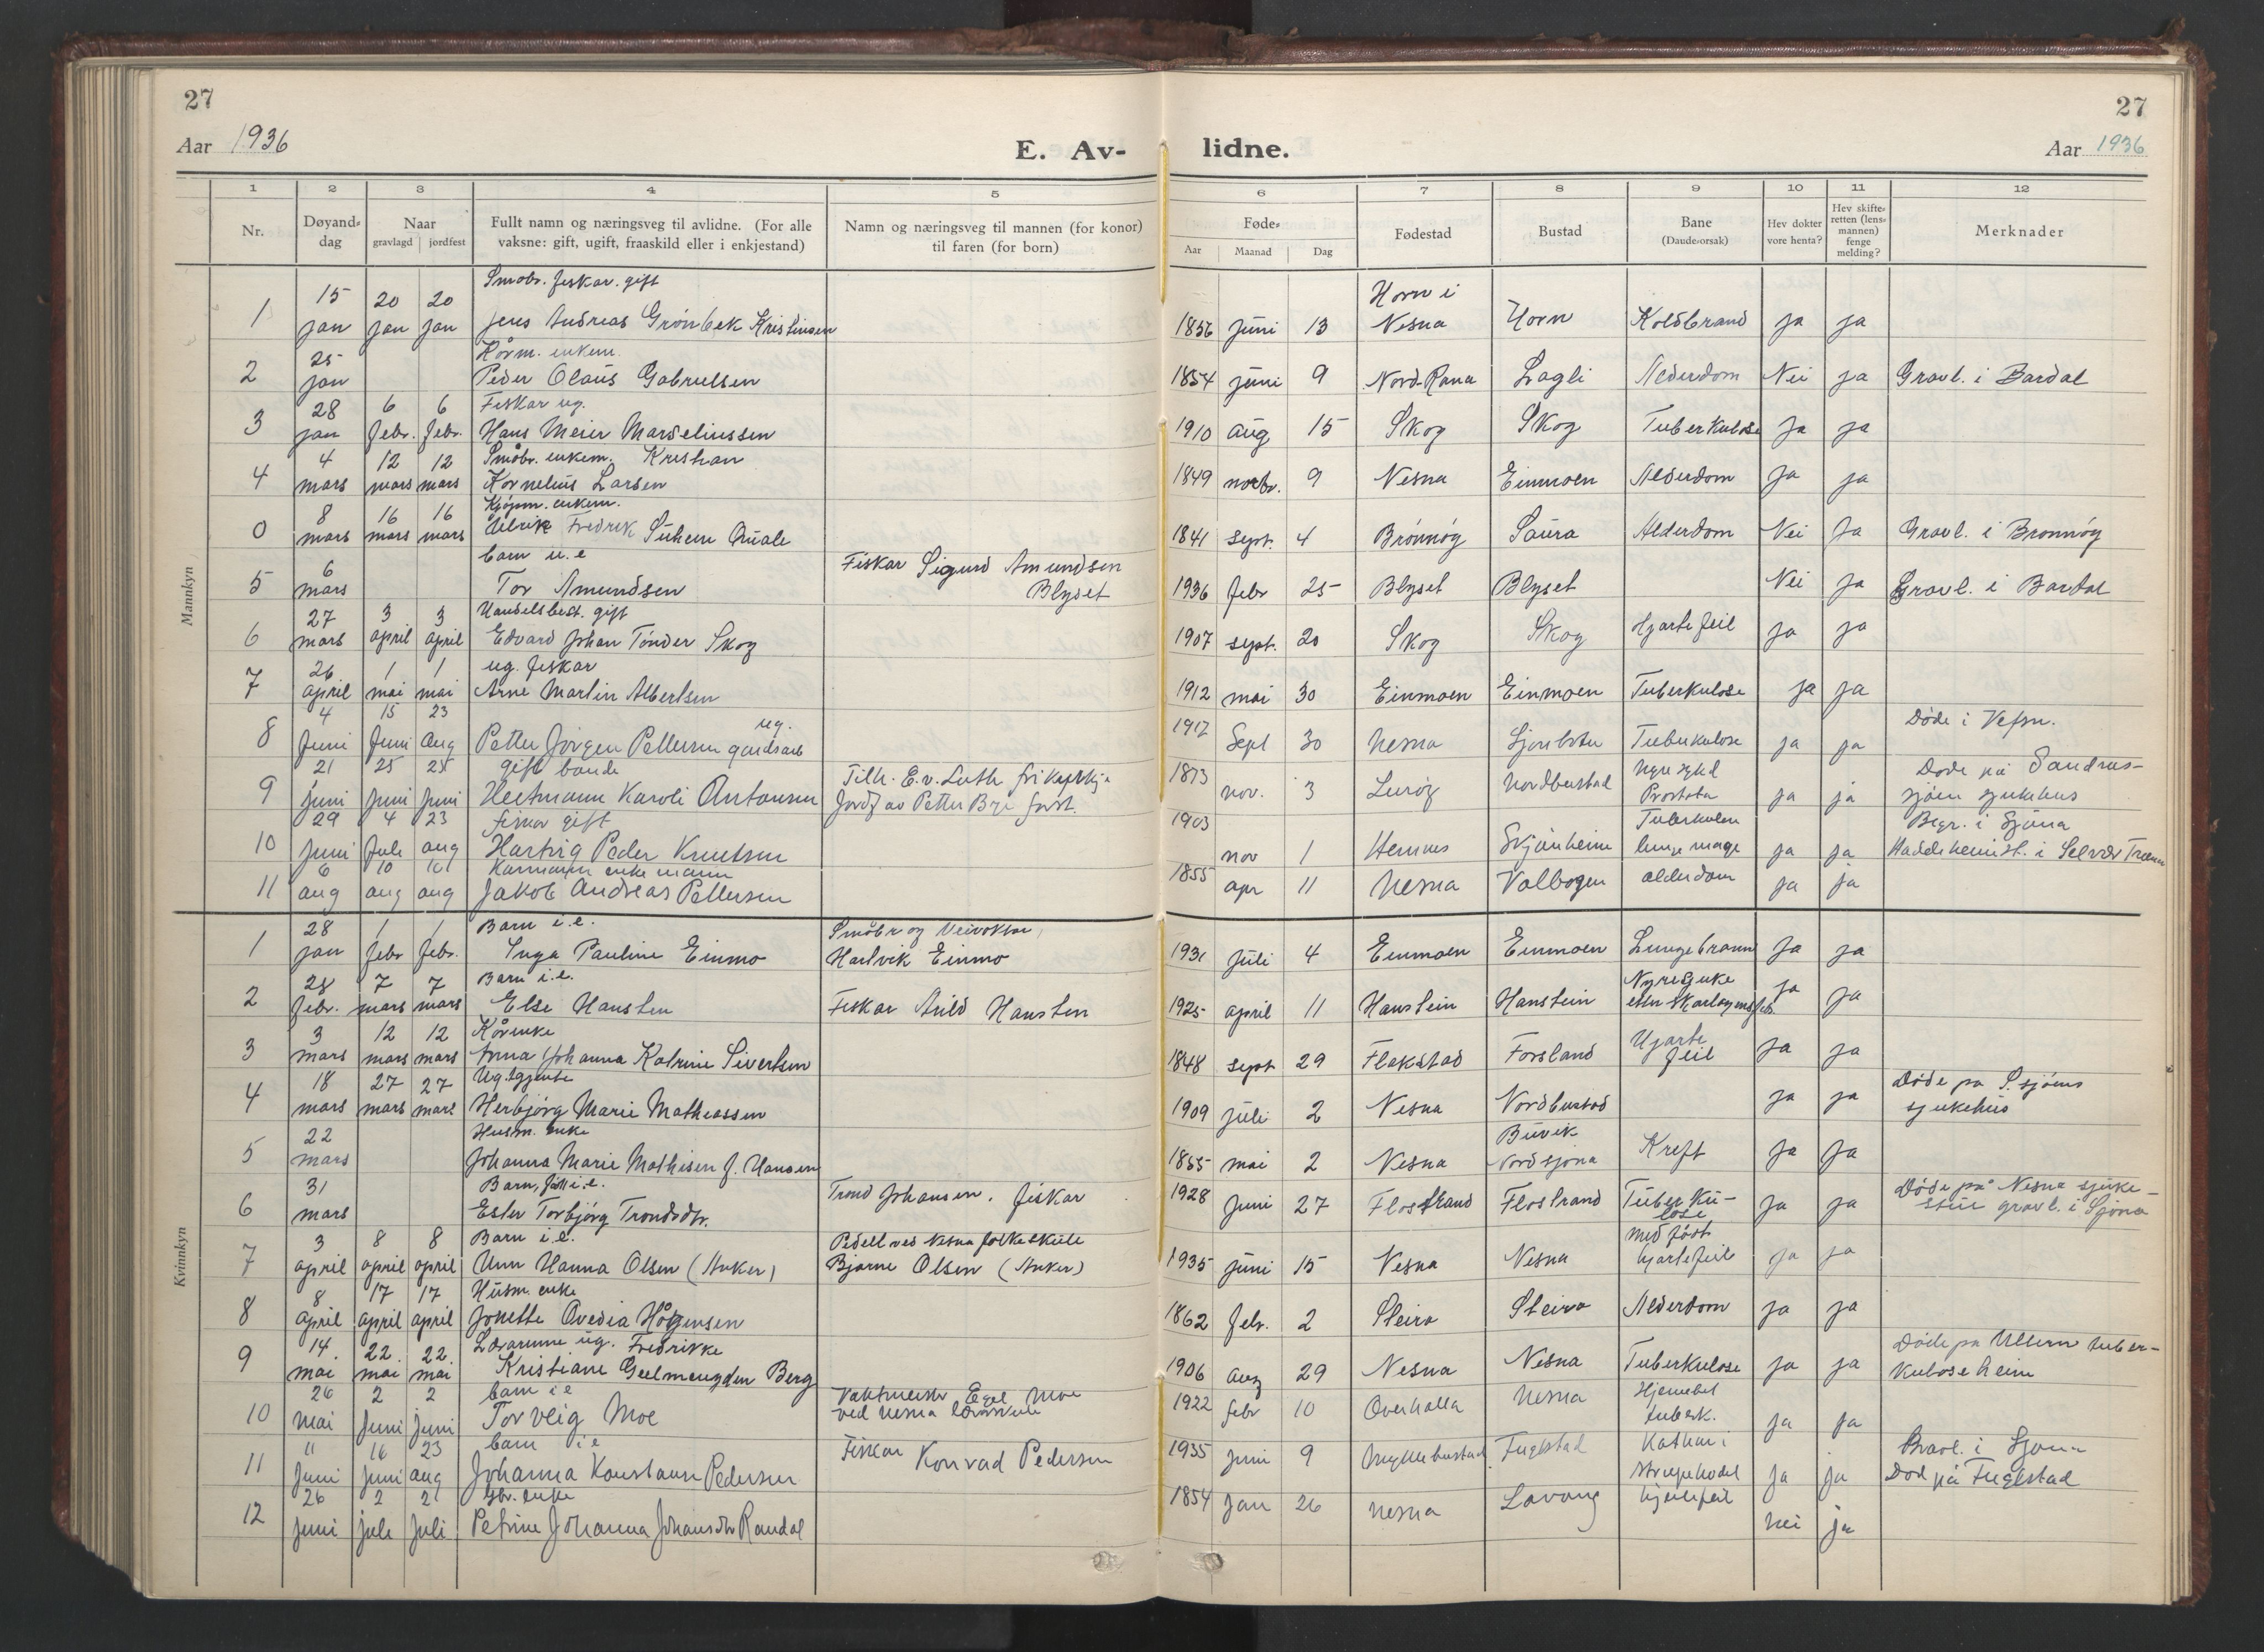 27
27
Aar 1936
E. Av-
lidne.
Aar 1936
1 2 3 4 5 6 7 8 9 10 11 12
Nr.
Døyand-dag
Naar
gravlagd | jordfest
Fullt namn og næringsveg til avlidne. (For alle
vaksne: gift, ugift, fraaskild eller i enkjestand)
Namn og næringsveg til mannen (for konor)
til faren (for born)
Føde-
Aar Maanad Dag
Fødestad
Bustad
Bane
(Daude-orsak)
Hev dokter
vore henta?
Hev skifte-
retten (lens-
mannen)
fenge
melding?
Merknader
Mannkyn
Småbr. fiskar. gift
1 15 jan 20 jan 20 jan Jens Andreas Grönbek Kristinsen 1856 juni 13 Horn i Nesna Horn Koldbrand ja ja
Kårm. enkem.
2 25 jan Peder Olaus Gabrielsen 1854 juni 9 Nord-Rana Lagli Alderdom Nei ja Gravl. i Bardal
Fiskar ug.
3 28 jan 6 febr. 6 febr. Hans Meier Marseliussen 1910 aug 15 Skog Skog Tuberkulose Ja ja
Småbr. enkem. Kristian
4 4 mars 12 mars 12 mars Kornelius Larsen 1849 novbr. 9 Nesna Einmoen Alderdom ja ja
Kjøpm. enkem.
0 8 mars 16 mars 16 mars Ulrik Fredrik Suhem Qvale 1841 sept. 4 Brönnöy Saura Alderdom Nei Ja Gravl. i Brönnöy
barn u.e
5 6 mars Tor Amundsen Fiskar Sigurd Amundsen Blyset 1936 febr 25 Blyset Blyset Nei ja Gravl. i Bardal
Handelsbest. gift
6 27 mars 3 april 3 april Edvard Johan Tönder Skog 1907 sept. 20 Skog Skog Hjartefeil ja ja
ug. fiskar
7 26 april 1 mai 1 mai Arne Martin Albertsen 1912 mai 30 Einmoen Einmoen Tuberkulose ja ja
8 4 Juni 15 Juni 23 Aug Petter Jörgen Pettersen ug. gardsarb 1917 Sept 30 Nesna Tuberkulose ja ja Döde i Vefsn.
gift bonde
9 21 juni 25 juni 25 juni Karoli Antonsen Tilh. E.v. Luth frikyrkje Jordf av Petter forst. 1873 nov. 3 Luröy Nordbustad Nyresykd Prostata ja ja Döde på Sandnes-sjöen sjukehus
fiskar gift
10 29 juni 4 juli 23 aug Hartvig Peder Knutsen 1903 nov 1 Hemnes Skjånheim Tuberkulose ja ja Begr. i Sjona
enkemann
11 6 aug 10 aug 10 aug Jakob Andreas Pettersen 1855 apr 11 Nesna Valbogen alderdom ja ja
Kvinnkyn
Barn i.e.
1 28 jan 1 febr 1 febr. Inga Pauline Einmo Småbr og Veivoktar, Hartvik Einmo 1931 juli 4 Einmoen Einmoen Lungebrann ja ja
Barn i.e.
2 28 febr. 7 mars 7 mars Else Hansten Fiskar Arild Hansten 1925 april 11 Hanstein Hanstein Nyresjuke etter skarlagensfeb. ja ja
Kårenke
3 3 mars 12 mars 12 mars Anna Johanna Katrine Sivertsen 1848 sept 29 Flakstad Forsland Hjarte feil ja ja
Ug. tjente
4 18 mars 27 mars 27 mars Herbjörg Marie Mathiassen 1909 juli 2 Nesna Nordbustad ja ja Döde pa S.sjöens sjukehus
Husm. enke
5 22 mars Johanna Marie Mathisen f. Hansen 1855 mai 2 Nesna Buvik Nordsjona Kreft ja ja
Barn, född i.e.
6 31 mars Ester Torbjörg Trondsdtr. Trond Johansen. fiskar 1928 Juni 27 Flostrand Flostrand Tuberkulose ja ja Döde på Nesna sjukestue gravl. i Sjona
Barn i.e.
7 3 april 8 april 8 april Unn Hanna Olsen (Anker) Pedell ved Nesna folkeskule Bjarne Olsen (Anker) 1935 juni 15 Nesna Nesna medfödt hjartefeil ja ja
Husm. enke
8 8 april 17 april 17 april Jonette Ovedia Håkensen 1862 febr. 2 Steiro Steiro Alderdom ja ja
Lærarinne ug. Fredrikke
9 14. mai 22. mai 22. mai Kristiane Geelmuyden Berg 1906 aug 29 Nesna Nesna Tuberkulose ja ja Döde pa Ullern tuber-kuloseheim
barn i e
10 26 mai 2 juni 2 juni Torveig Moe Vaktmeister Egil Moe ved Nesna lærarskule 1922 febr 10 Overhalla Nesna tuberk. ja ja
barn i e
11 11 juni 16 juni 23 aug Johanna Konstanse Pedersen Fiskar Konrad Pedersen 1935 juni 9 Fuglstad Katharr i strupehodet ja ja Gravl. i Sjona Död på Fuglstad
gbr. enke
12 26 juni 2 juli 2 juli Petrine Johanna Johansdtr Randal 1854 jan 26 Nesna Lovong hjertefeil nei ja